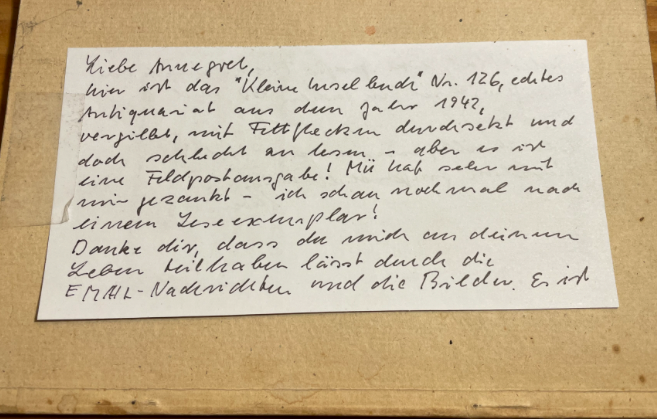 Liebe Annegret,
hier ist das "Kleine Inselbuch" Nr. 126, echtes
Antiquariat aus dem Jahr 1942,
vergilbt, mit Fettflecken durchsetzt und
doch schlecht an lesen - aber es ist
eine Feldpostausgabe! Mü hat sehr mit
mir gezankt - ich schau noch mal nach
einem Leseexemplar!
Danke dir, dass du mich an deinem
Leben teilhaben lässt durch die
EMAIL-Nachrichten und die Bilder. Es ist